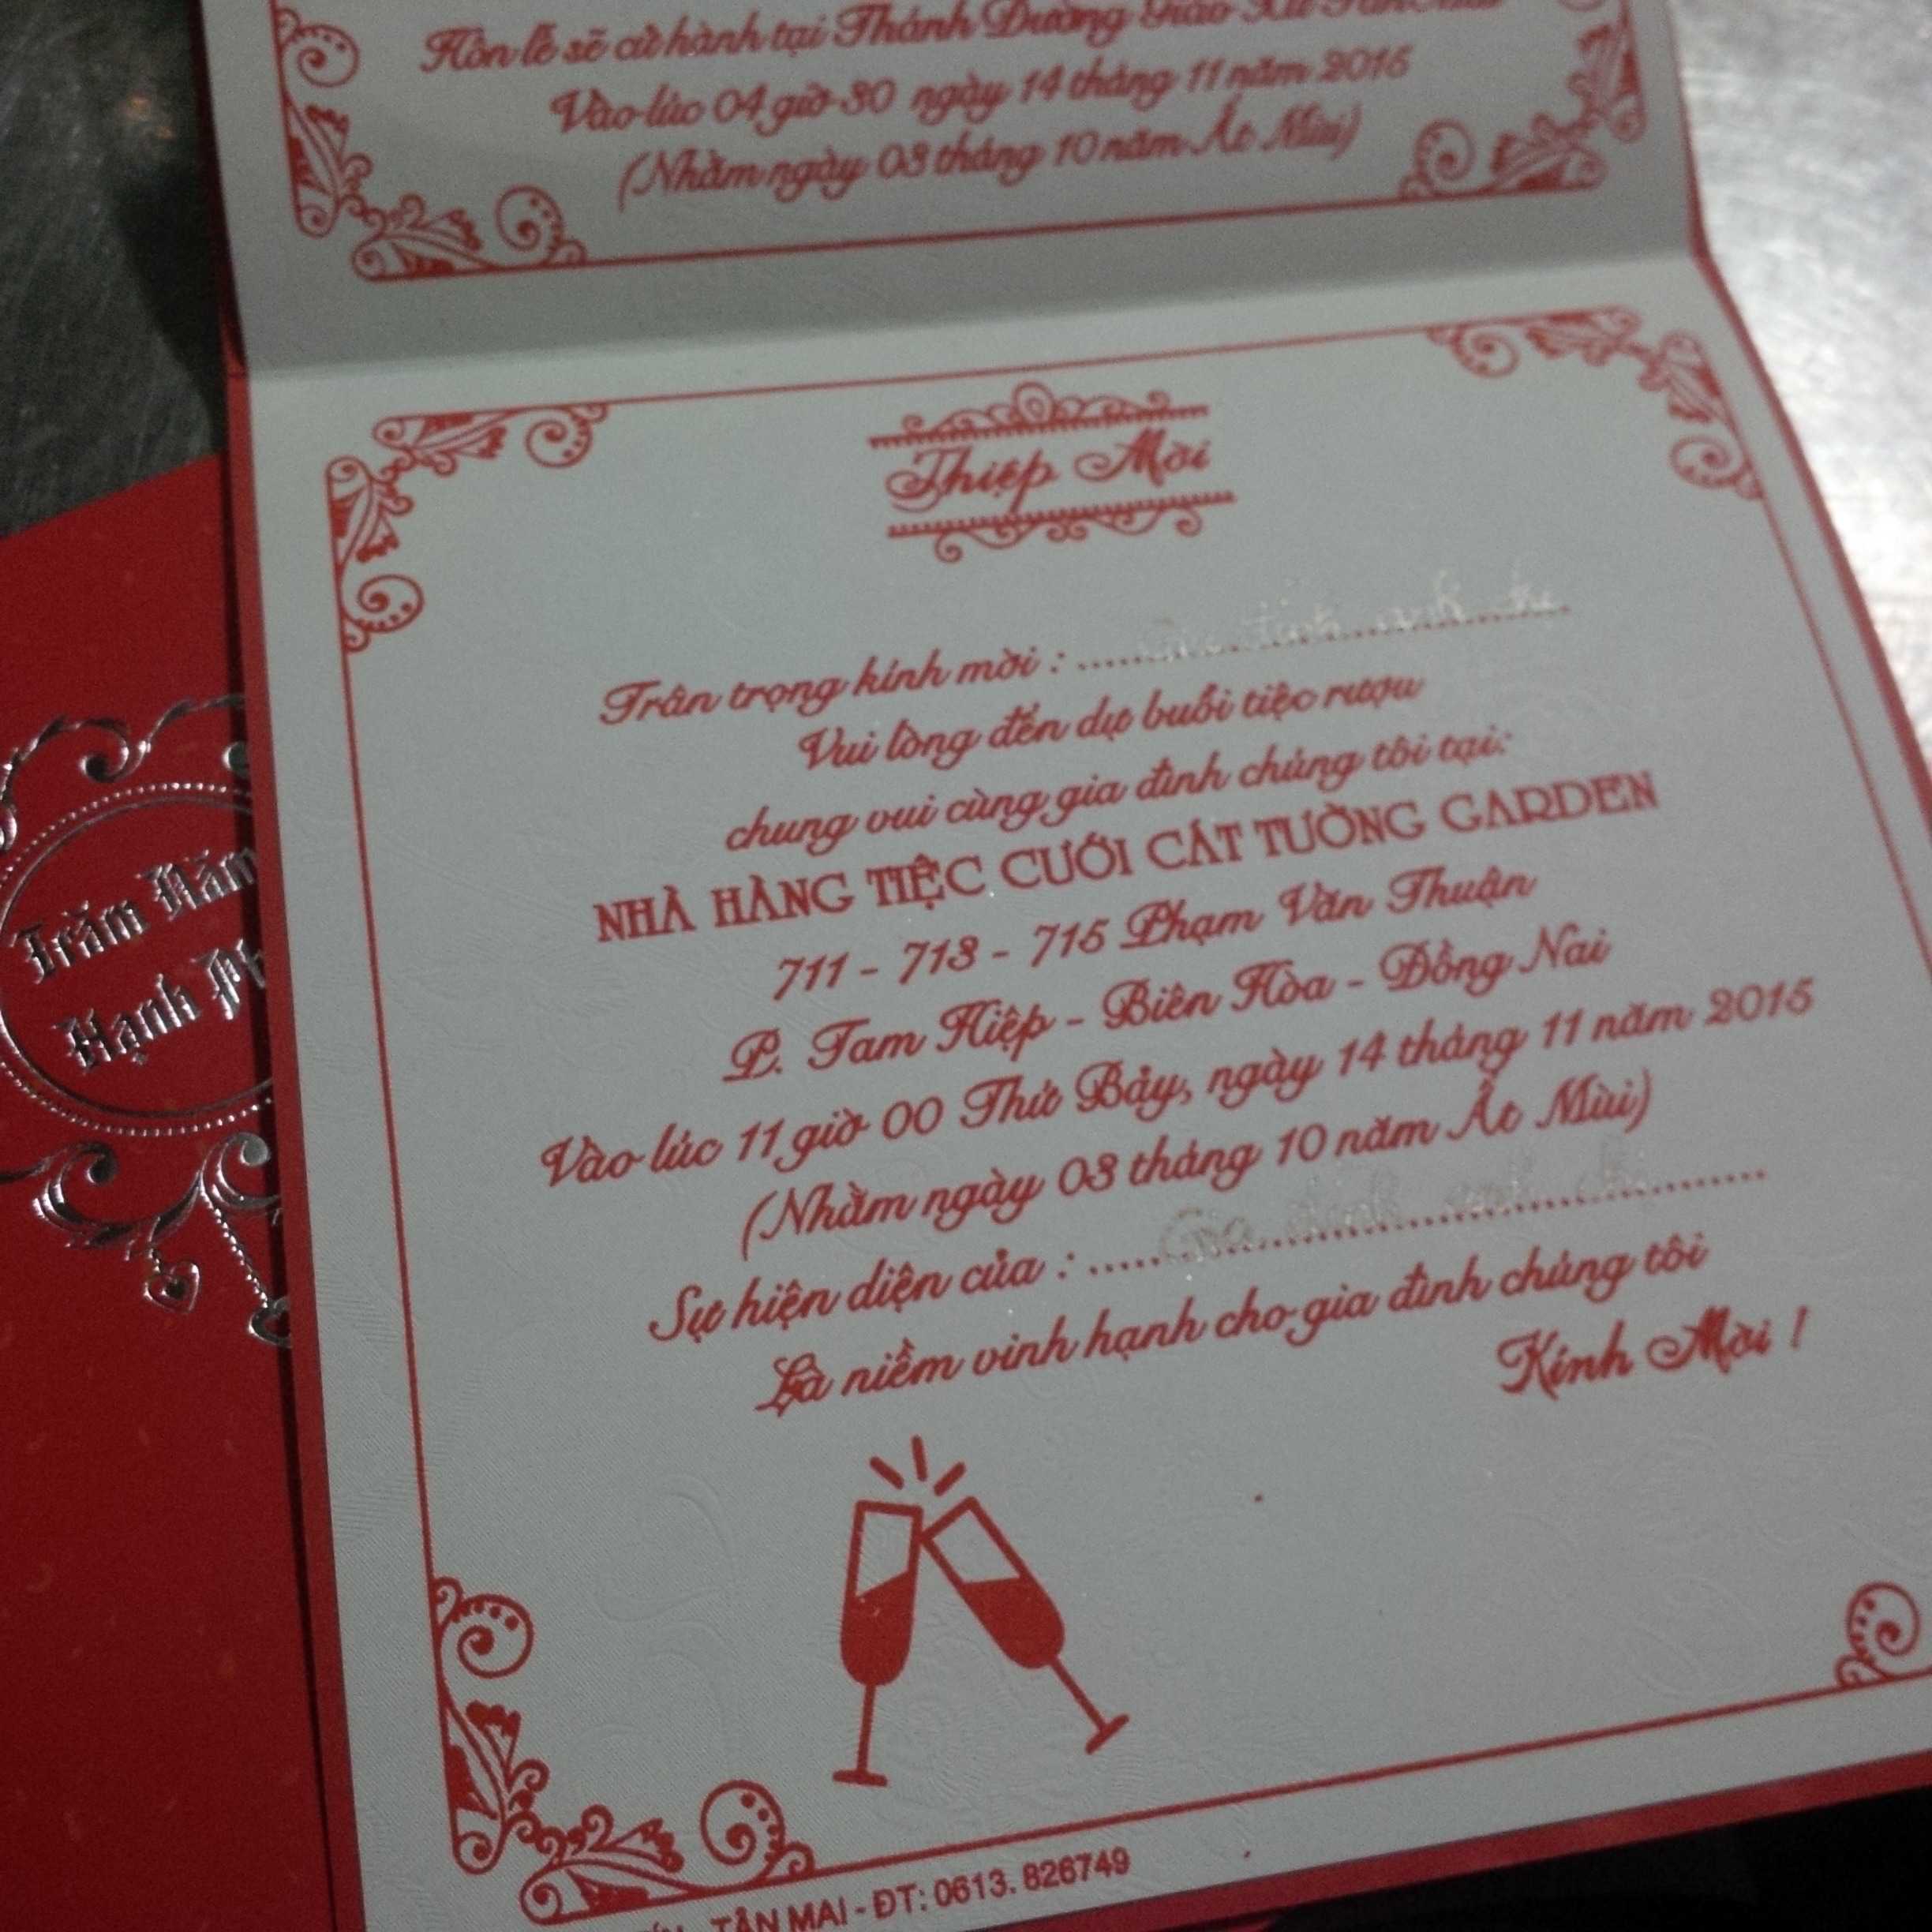 Hôn lễ sẽ cử hành tại Thánh Đường Giáo Xứ
Vào lúc 04 giờ 30 ngày 14 tháng 11 năm 2015
(Nhằm ngày 03 tháng 10 năm Ất Mùi)
Thiệp Mời
Trân trọng kính mời : ..... đình anh chị
Vui lòng đến dự buổi tiệc rượu
chung vui cùng gia đình chúng tôi tại:
NHÀ HÀNG TIỆC CƯỚI CÁT TƯỜNG GARDEN
711 - 713 - 715 Phạm Văn Thuận
P. Tam Hiệp - Biên Hòa - Đồng Nai
Vào lúc 11 giờ 00 Thứ Bảy, ngày 14 tháng 11 năm 2015
(Nhằm ngày 03 tháng 10 năm Ất Mùi)
Sự hiện diện của : ..... Gia đình anh chị
Là niềm vinh hạnh cho gia đình chúng tôi
Kính Mời !
TÂN MAI - ĐT: 0613. 826749
Trăm Năm
Hạnh